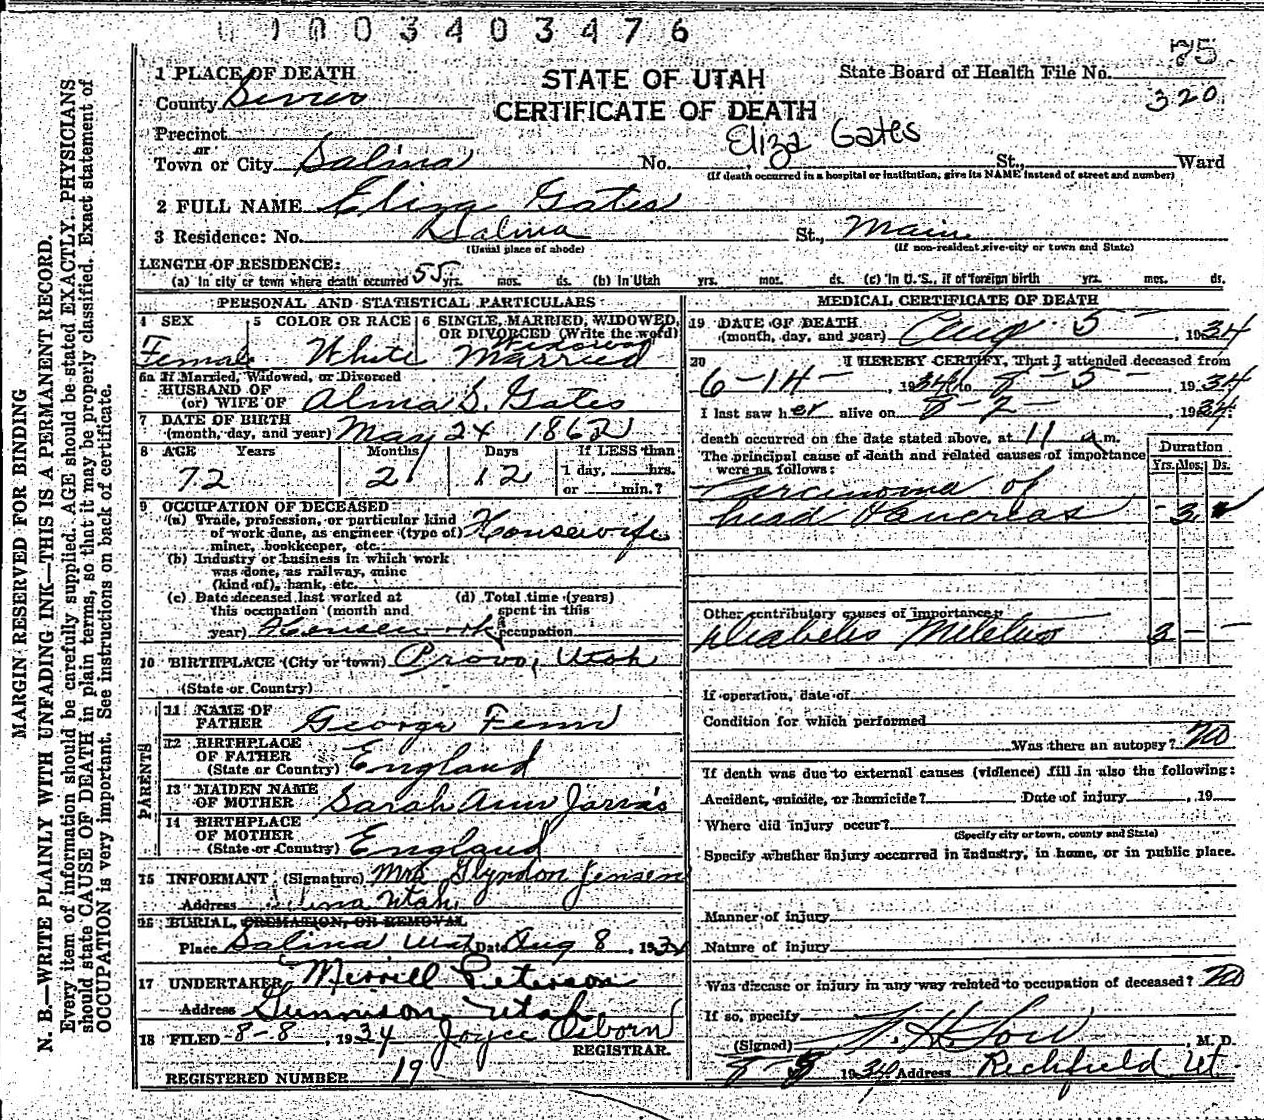 0 3 4 0 3 4 7 6
1 PLACE OF DEATH
County Sevier
Precinct
or
Town or City Salina No. St., Ward
STATE OF UTAH
CERTIFICATE OF DEATH
Eliza Gates
State Board of Health File No. 75
320
(If death occurred in a hospital or institution, give its NAME instead of street and number)
2 FULL NAME Eliza Gates
3 Residence: No. Salina St., Main
(Usual place of abode) (If non-resident give city or town and State)
LENGTH OF RESIDENCE:
(a) In city or town where death occurred 55 yrs. mos. ds. (b) In Utah yrs. mos. ds. (c) In U. S., if of foreign birth yrs. mos. ds.
PERSONAL AND STATISTICAL PARTICULARS
4 SEX 5 COLOR OR RACE 6 SINGLE, MARRIED, WIDOWED, OR DIVORCED (Write the word)
Female White Married Widowed
6a If Married, Widowed, or Divorced
HUSBAND OF
(or) WIFE OF Alma S. Gates
7 DATE OF BIRTH
(month, day, and year) May 24 1862
8 AGE Years Months Days If LESS than
72 2 12 1 day, hrs.
or min.?
9 OCCUPATION OF DECEASED
(a) Trade, profession, or particular kind
of work done, as engineer (type of) Housewife
miner, bookkeeper, etc.
(b) Industry or business in which work
was done, as railway, mine
(kind of), bank, etc.
(c) Date deceased last worked at (d) Total time (years)
this occupation (month and spent in this
year) Housework occupation
10 BIRTHPLACE (City or town) Provo, Utah
(State or Country)
PARENTS
11 NAME OF
FATHER George Fenn
12 BIRTHPLACE
OF FATHER
(State or Country) England
13 MAIDEN NAME
OF MOTHER Sarah Ann Jarvis
14 BIRTHPLACE
OF MOTHER
(State or Country) England
15 INFORMANT (Signature) Mrs Glyndon Jensen
Address Salina Utah
16 BURIAL, CREMATION, OR REMOVAL
Place Salina Utah Date Aug 8, 1934
17 UNDERTAKER Merrill Peterson
Address Gunnison Utah
18 FILED 8-8, 1934 Joyce Osborn
REGISTRAR.
REGISTERED NUMBER 19
MEDICAL CERTIFICATE OF DEATH
19 DATE OF DEATH
(month, day, and year) Aug 5 1934
20 I HEREBY CERTIFY, That I attended deceased from
6-14- 1934 to 8-5-, 1934
I last saw her alive on 8-2-, 1934
death occurred on the date stated above, at 11 a m.
The principal cause of death and related causes of importance
were as follows:
Duration
Yrs. Mos. Ds.
Carcinoma of
head Pancreas - 3
Other contributory causes of importance:
Diabetes Melelus 3 - -
If operation, date of
Condition for which performed
Was there an autopsy? no
If death was due to external causes (violence) fill in also the following:
Accident, suicide, or homicide? Date of injury , 19
Where did injury occur?
(Specify city or town, county and State)
Specify whether injury occurred in industry, in home, or in public place.
Manner of injury
Nature of injury
Was disease or injury in any way related to occupation of deceased? no
If so, specify
(Signed) , M. D.
1934 Address Richfield Ut.
MARGIN RESERVED FOR BINDING
N. B.—WRITE PLAINLY WITH UNFADING INK—THIS IS A PERMANENT RECORD.
Every item of information should be carefully supplied. AGE should be stated EXACTLY. PHYSICIANS
should state CAUSE OF DEATH in plain terms, so that it may be properly classified. Exact statement of
OCCUPATION is very important. See instructions on back of certificate.